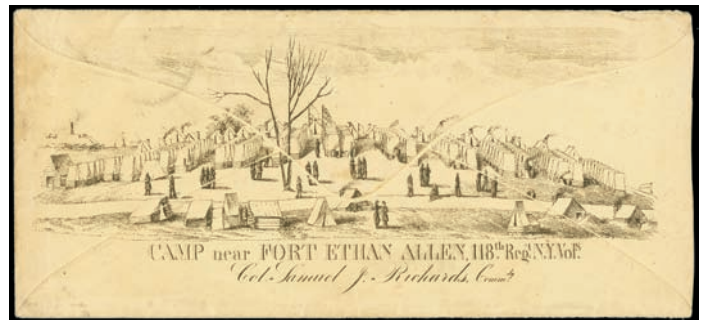 CAMP near FORT ETHAN ALLEN, 118th Reg.t N.Y. Vol.s
Col. Samuel J. Richards, Comm.g